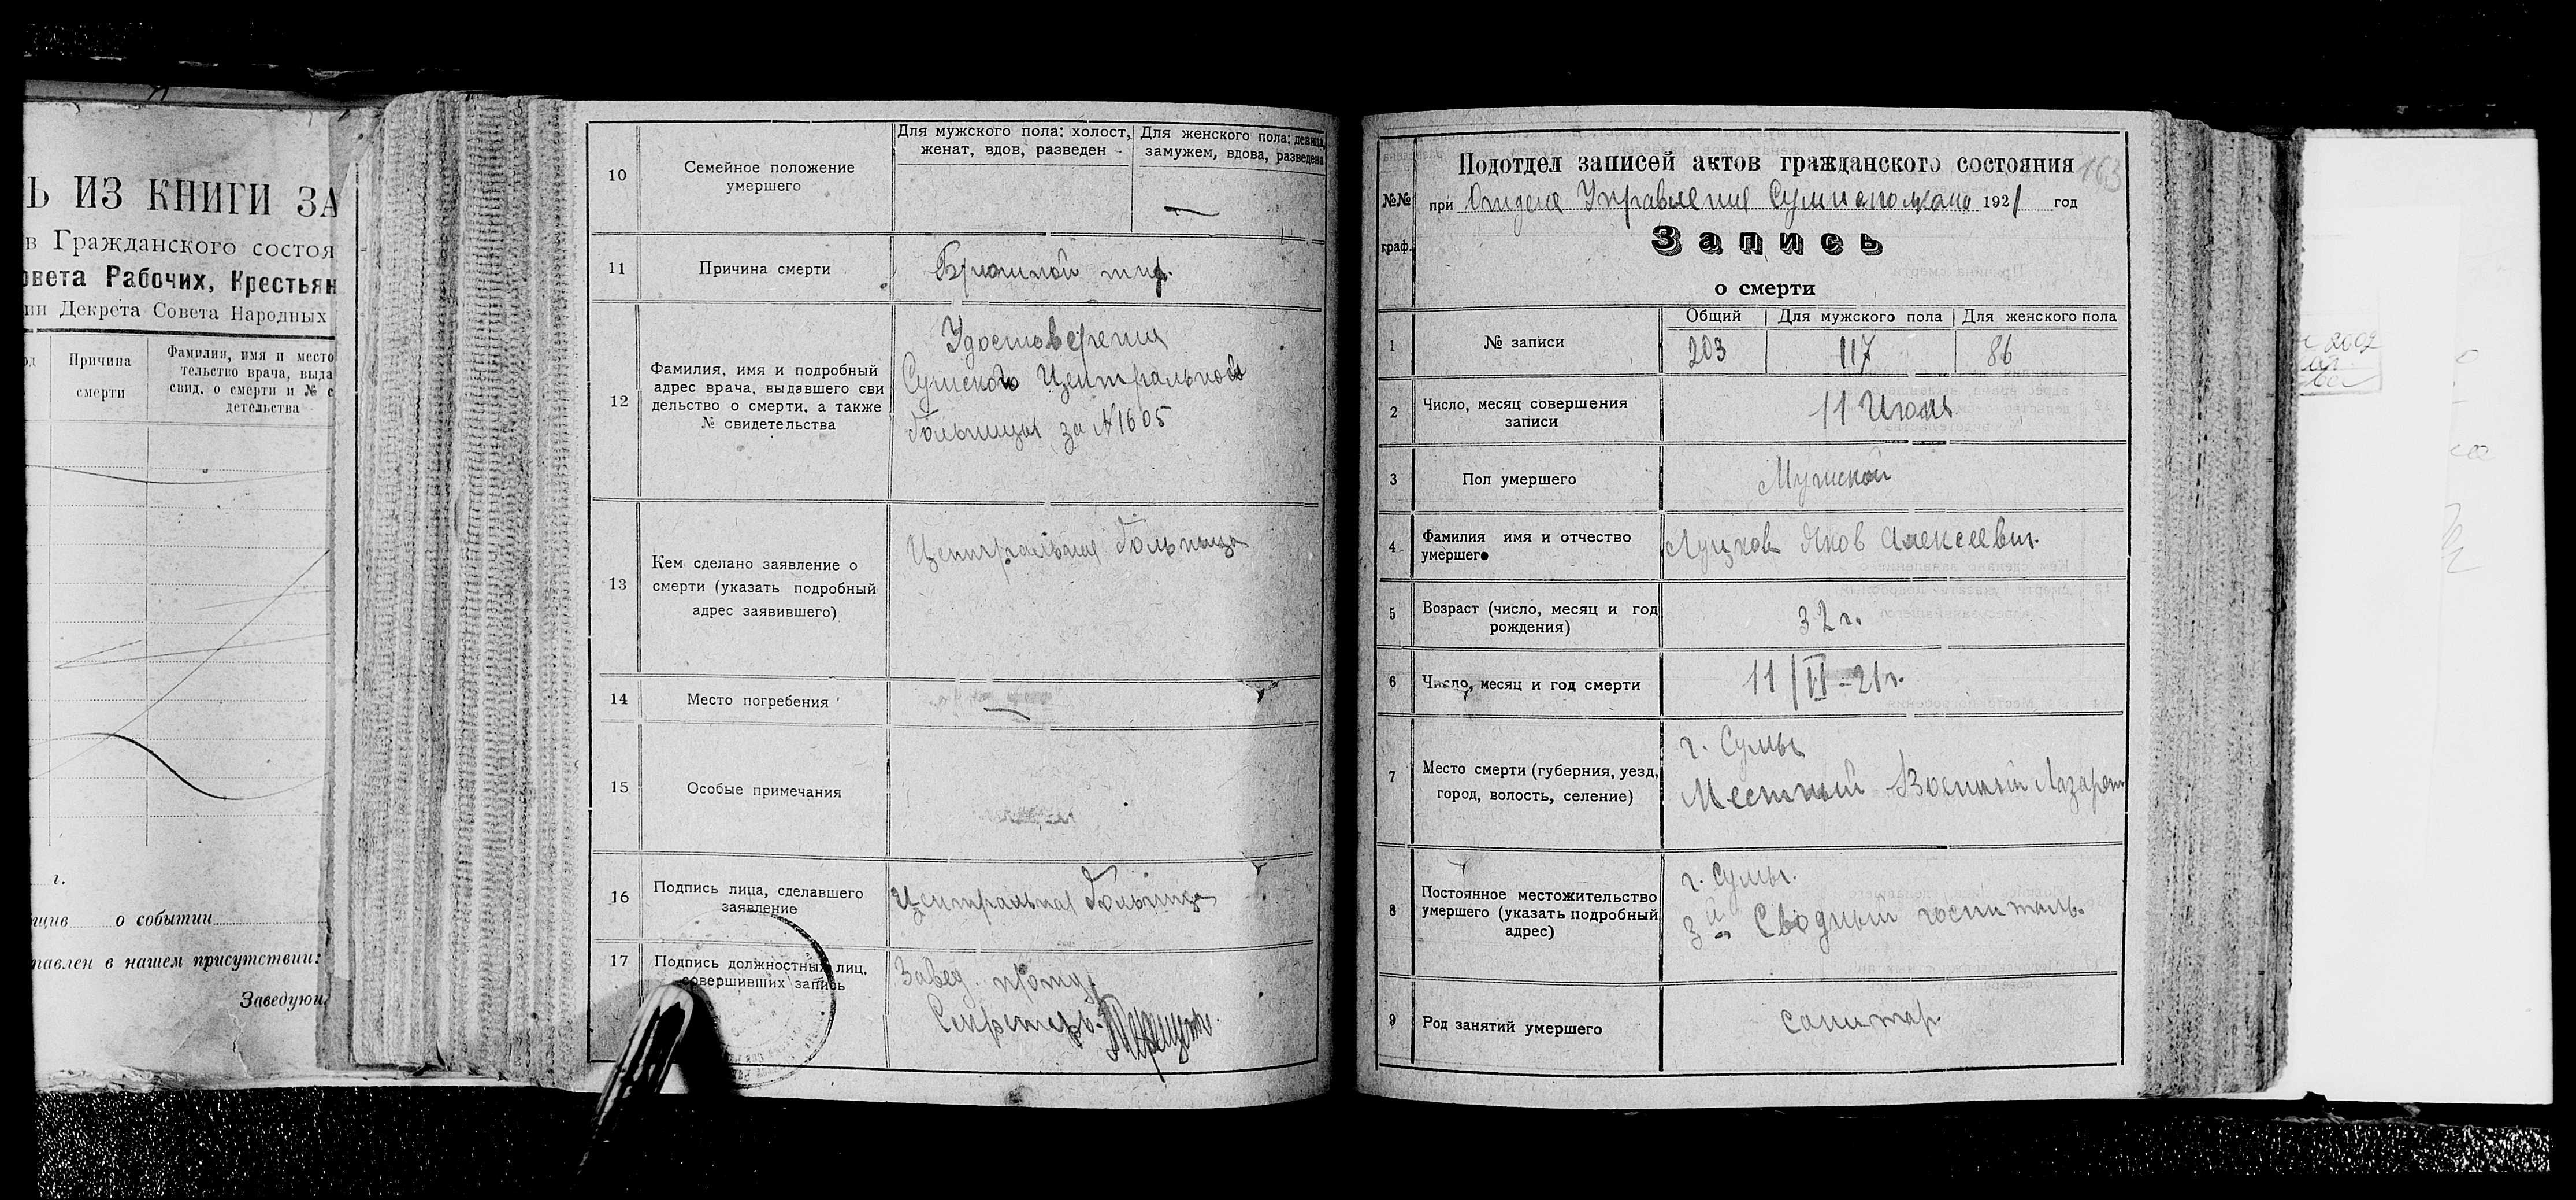 Ь ИЗ КНИГИ ЗА
в Гражданского состоя
овета Рабочих, Крестьян
ии Декрета Совета Народных
Причина
смерти
Фамилия, имя и место
тельство врача, выда
свид. о смерти и № с
детельства
г.
о событии
тавлен в нашем присутствии:
Заведующ
10
Семейное положение
умершего
Для мужского пола: холост,
женат, вдов, разведен
Для женского пола: девица,
замужем, вдова, разведена
—
11
Причина смерти
Брюшной тиф.
12
Фамилия, имя и подробный
адрес врача, выдавшего сви
дельство о смерти, а также
№ свидетельства
Удостоверения
Сумского Центральной
больницы за №1605
13
Кем сделано заявление о
смерти (указать подробный
адрес заявившего)
Центральная больница
14
Место погребения
—
15
Особые примечания
16
Подпись лица, сделавшего
заявление
Центральная больница
17
Подпись должностных лиц,
совершивших запись
Завед. п/отд.
Секретарь
163
№№
граф.
Подотдел записей актов гражданского состояния
при Отделе Управления 1921 год
Запись
о смерти
1
№ записи
Общий
Для мужского пола
Для женского пола
203
117
86
2
Число, месяц совершения
записи
11 Июля
3
Пол умершего
Мужской
4
Фамилия имя и отчество
умершего
Луцков Яков Алексеевич.
5
Возраст (число, месяц и год
рождения)
32 г.
6
Число, месяц и год смерти
11/VI-21г.
7
Место смерти (губерния, уезд,
город, волость, селение)
г. Сумы
Местный Военный Лазарет
8
Постоянное местожительство
умершего (указать подробный
адрес)
г. Сумы.
3й Сводный госпиталь.
9
Род занятий умершего
санитар.